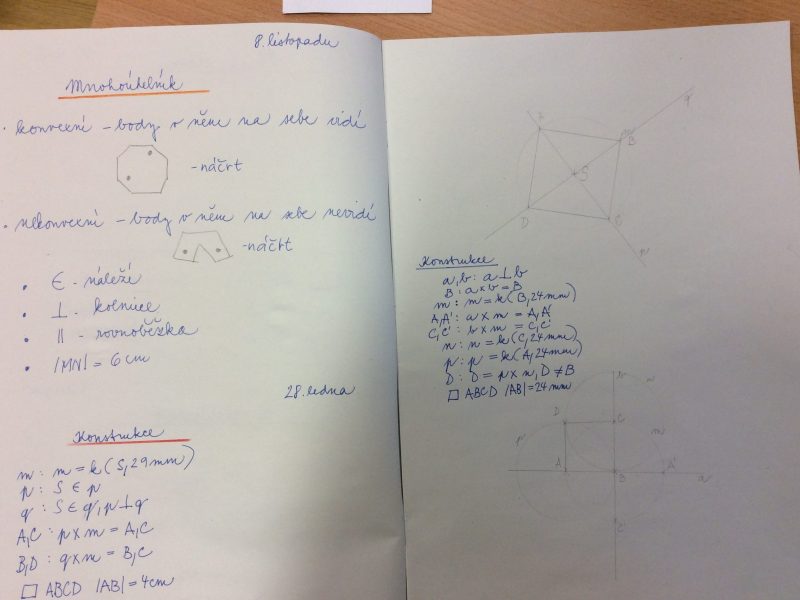 8. listopadu
Mnohoúhelník
• konvexní – body v něm na sebe vidí
- náčrt
• nekonvexní – body v něm na sebe nevidí
- náčrt
• ∈ - náleží
• ⊥ - kolmice
• || - rovnoběžka
• |MN| = 6 cm
28. ledna
Konstrukce
m: m = k(S, 29 mm)
p: S ∈ p
q: S ∈ q, p ⊥ q
A,C: p × m = A,C
B,D: q × m = B,C
□ ABCD |AB| = 4cm
q
B
S
D
C
p
Konstrukce
a,b: a ⊥ b
B: a × b = B
m: m = k(B, 24 mm)
A,A': a × m = A,A'
C,C': b × m = C,C'
n: n = k(C, 24 mm)
p: p = k(A, 24 mm)
D: D = p × n, D ≠ B
□ ABCD |AB| = 24 mm
b
n
D
C
p
m
A
B
A'
a
C'